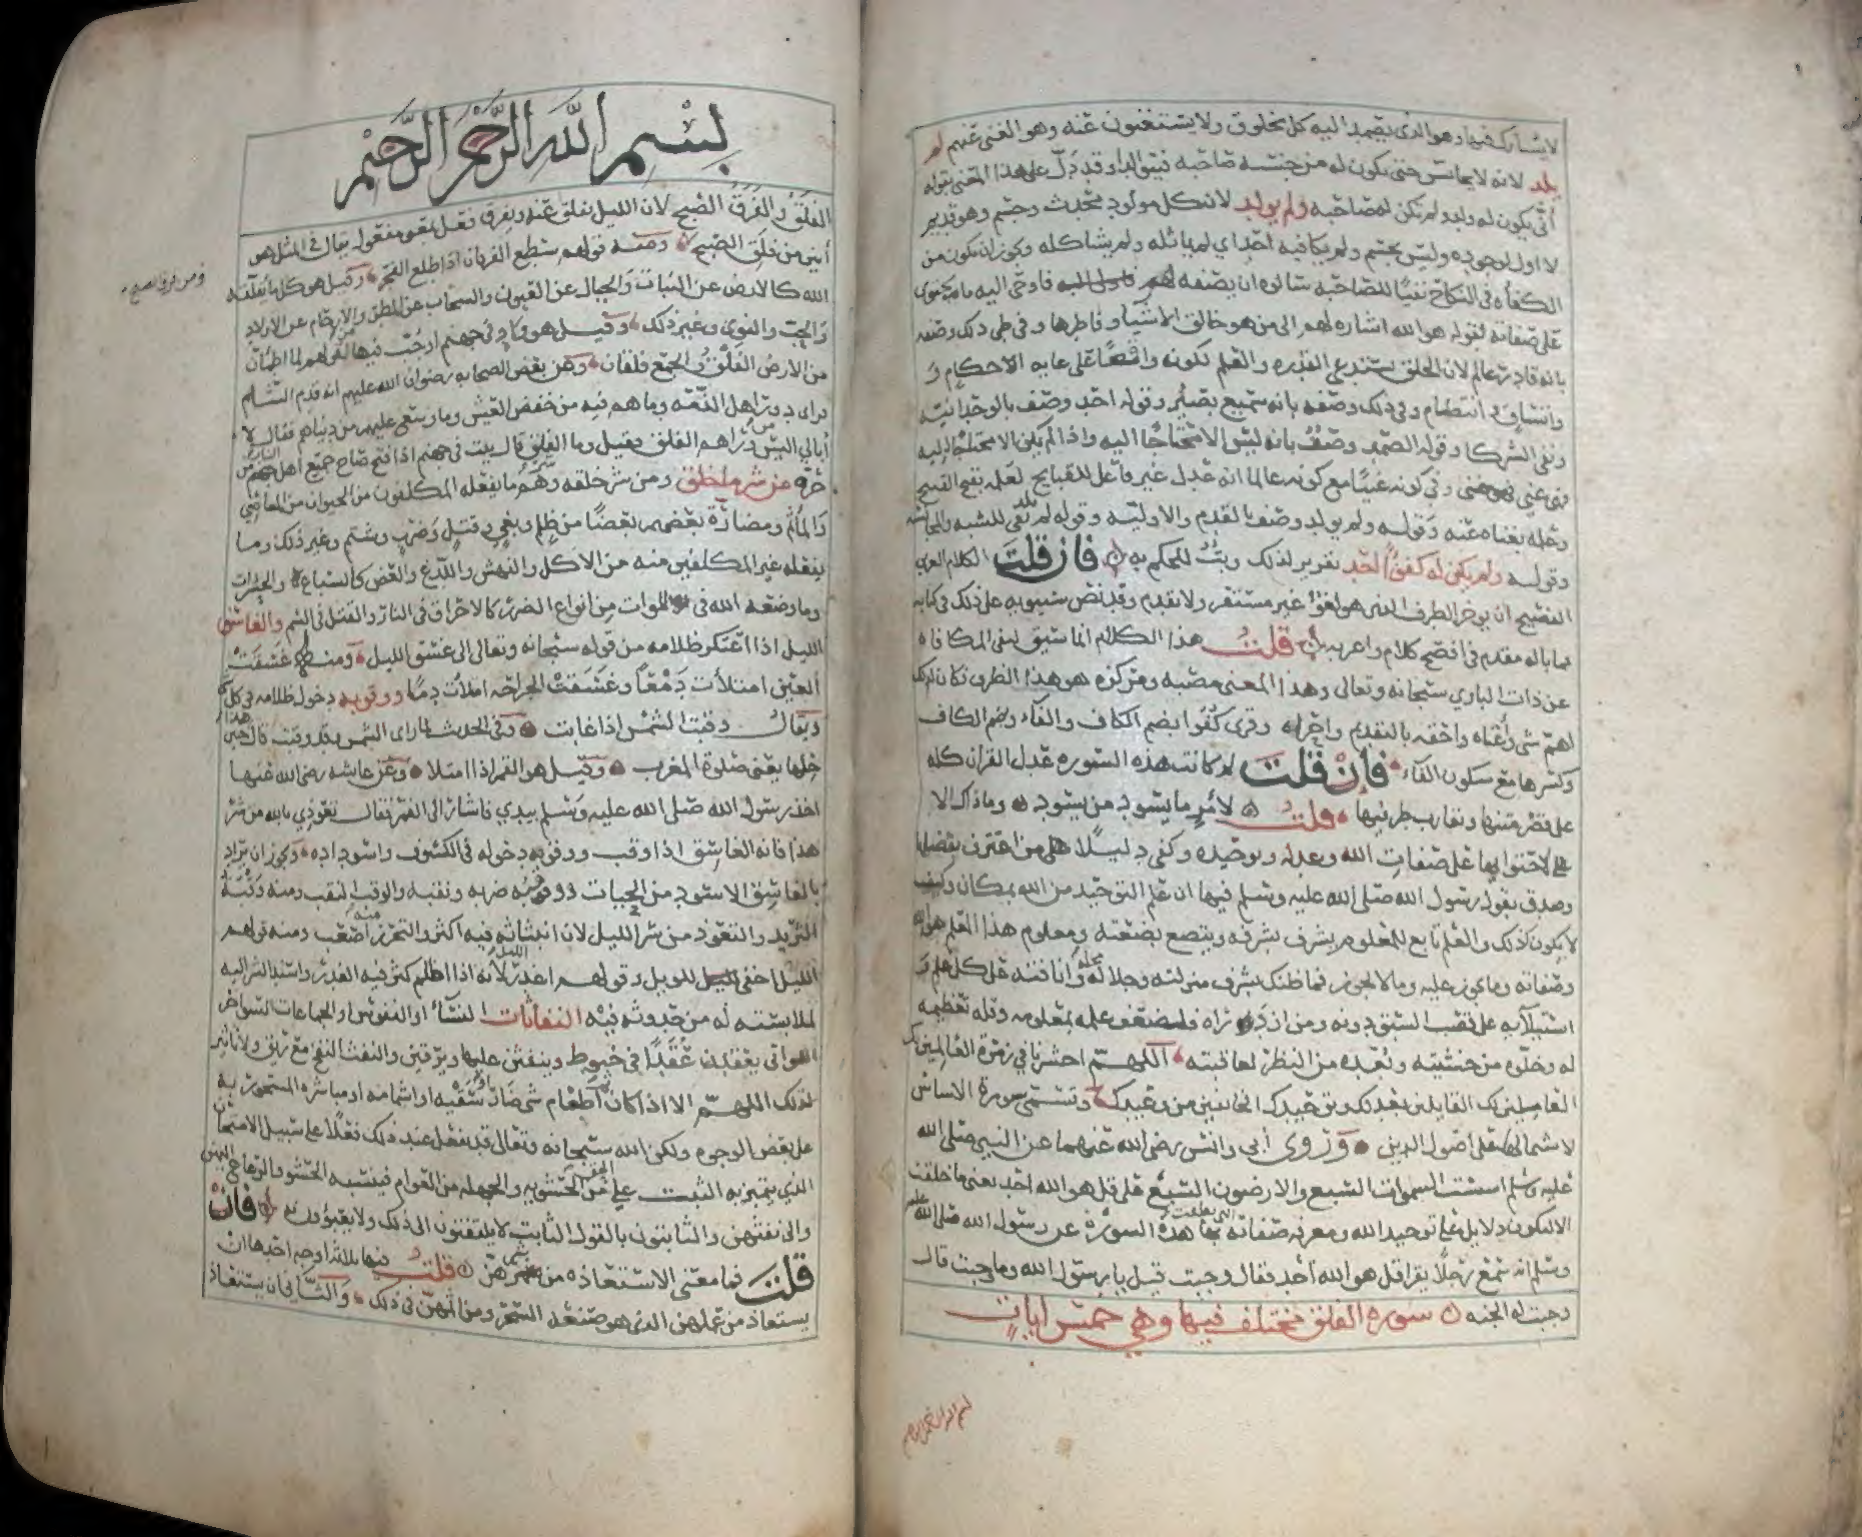 لا يشارك فيها وهو الذي يصمد اليه كل مخلوق ولا يستغنون عنه وهو الغني عنهم لم
يلد لانه لا يجانس حتى يكون له من جنسه صاحبه فيتوالدا وقد دل على هذا المعنى بقوله
أنى يكون له ولد ولم تكن له صاحبه ولم يولد لان كل مولود محدث وجسم وهو قديم
لا اول لوجوده وليس بجسم ولم يكافيه احد اي لم يماثله ولم يشاكله ويجوز ان يكون من
الكفأه في النكاح نفيًا للصاحبه سالوه ان يصفه لهم فاوحى اليه ما يحتوي
على صفاته فقوله هو الله اشاره لهم الى من هو خالق الاشيا وفاطرها وفي طي ذلك وصفه
بانه قادر عالم لان الخلق يستدعي القدره والعلم لكونه واقعًا على غايه الاحكام و
واتساق وانتظام وفي ذلك وصفه بانه سميع بصير وقوله احد وصف بالوحدانيه
ونفي الشركا وقوله الصمد وصفٌ بانه ليس الا محتاجًا اليه واذا لم يكن الا محتاجًا اليه
فهو غني وفي كونه غنيًا مع كونه عالما انه عدل غير فاعل للقبايح لعلمه بقبح القبيح
وعلمه بغناه عنه وقوله ولم يولد وصف بالقدم والاوليه وقوله لم يلد نفي للشبه والمجانسه
وقوله ولم يكن له كفوًا احد تقرير لذلك وبتٌ للحكم به فان قلت الكلام العربي
الفصيح ان يوخر الظرف الذي هو لغوٌ غير مستقر ولا يقدم وقد نص سيبويه على ذلك في كتابه
فما باله مقدم في افصح كلام واعربه قلت هذا الكلام انما سيق لنفي المكافاه
عن ذات الباري سبحانه وتعالى وهذا المعنى مصبه ومركزه هو هذا الظرف فكان لذلك
اهم شي واعناه واحقه بالتقديم واحراه وقرى كفوا بضم الكاف والفآء وبضم الكاف
وكسرها مع سكون الفآء فان قلت لم كانت هذه السوره عدل القران كله
على قصر متنها وتقارب طرفيها قلت لامرٍ ما يسود من يسود وما ذاك الا
لاحتوايها على صفات الله وعدله وتوحيده وكفى دليلًا من اعترف بفضلها
وصدق بقول رسول الله صلى الله عليه وسلم فيها ان علم التوحيد من الله بمكان وكيف
لا يكون كذلك والعلم تابع للمعلوم يشرف بشرفه ويتضع بضعته ومعلوم هذا العلم هو الله
وصفاته وما يجوز عليه وما لا يجوز فما ظنك بشرف منزلته وجلاله محله وانافته على كل علم و
استيلآيه على قصب السبق دونه ومن ازدراه فلضعف علمه بمعلومه وقله تعظيمه
له وخلوه من خشيته وبعده من النظر لعاقبته اللهم احشرنا في زمرة العالمين بك
العاملين لك القايلين بعدلك وتوحيدك الخايفين من وعيدك وتسمى سورة الاساس
لاشتمالها على اصول الدين وروى أبي وانس رضي الله عنهما عن النبي صلى الله
عليه وسلم اسست السموات السبع والارضون السبع على قل هو الله احد يعني ما خلقت
الا لتكون دلايل على توحيد الله ومعرفه صفاته التي نطقت بها هذه السورة عن رسول الله صلى الله عليه
وسلم انه سمع رجلًا يقرا قل هو الله أحد فقال وجبت قيل يا رسول الله وما وجبت قال
وجبت له الجنه سوره الفلق مختلف فيها وهي خمس ايات
بسم الله الرحمن الرحيم
بسم الله الرحمن الرحيم
الفلق والفرق الصبح لان الليل يفلق عنه ويفرق فعل بمعنى مفعول يقال في المثل هو
أبين من فلق الصبح ومنه قولهم سطع الفرقان اذا طلع الفجر وقيل هو كل ما يفلقه
ومن فرق الصبح
الله كالارض عن النبات والجبال عن العيون والسحاب عن المطر والارحام عن الاولاد
والحب والنوى وغير ذلك وقيل هو واد في جهنم او جب فيها من قولهم لما اطمان
من الارض الفلق والجمع فلقان وعن بعض الصحابه رضوان الله عليهم انه قدم الشام
فراى دور اهل الذمه وما هم فيه من خفض العيش وما وسع عليهم من دنياهم فقال لا
أبالي اليس من وراهم الفلق فقيل وما الفلق قال بيت في جهنم اذا فتح صاح جميع اهل النار من
حره من شر ما خلق ومن شر خلقه وشرهم ما يفعله المكلفون من الحيوان من المعاصي
والمأثم ومضارة بعضهم بعضًا من ظلم وبغي وقتل وضرب وشتم وغير ذلك وما
يفعله غير المكلفين منه من الاكل والنهش واللدغ والعض كالسباع والحشرات
وما وضعه الله في الموات من انواع الضرر كالاحراق في النار والقتل في السم والغاسق
الليل اذا اعتكر ظلامه من قوله سبحانه وتعالى الى غسق الليل ومنه غسقت
العين امتلأت دمعًا وغسقت الجراحه امتلأت دمًا ووقوبه دخول ظلامه في كل
ويقال وقبت الشمس اذا غابت وفي الحديث لما راى الشمس قد وقبت قال هذا حين
حلها يعني صلوة المغرب وقيل هو القمر اذا امتلا وعن عايشه رضي الله عنها
اخذ رسول الله صلى الله عليه وسلم بيدي فاشار الى القمر فقال تعوذي بالله من شر
هذا فانه الغاسق اذا وقب ووقوبه دخوله في الكسوف واسوداده ويجوز ان يراد
بالغاسق الاسود من الحيات ووقبه ضربه ونقبه والوقب النقب ومنه وقبة
الثريد والتعوذ من شر الليل لان انبثاثه فيه اكثر والتحرز منه اصعب ومنه قولهم
الليل اخفى للويل وقولهم اغدر الليل لأنه اذا اظلم كثر فيه الغدر واسند الشر اليه
لملابسته له من حدوثه فيه النفاثات النسآء او النفوس او الجماعات السواحر
اللواتي يعقدن عُقدًا في خيوط وينفثن عليها ويرقين والنفث النفخ مع ريق ولا تاثير
لذلك اللهم الا اذا كان ثم اطعام شي ضار او سقيه او اشمامه او مباشره المسحور به
على بعض الوجوه ولكن الله سبحانه وتعالى قد يفعل عند ذلك فعلًا على سبيل الامتحان
الذي يتميز به الثبت على الحق من الحشويه والجهله من العوام فينسبه الحشو والرعاع اليهن
والى نفثهن والثابتون بالقول الثابت لا يلتفتون الى ذلك ولا يعبؤون به فان
قلت فما معنى الاستعاذه من شرهن قلت فيها ثلاثة اوجه احدها ان
يستعاذ من عملهن الذي هو صنعة السحر ومن اثمهن في ذلك والثاني ان يستعاذ